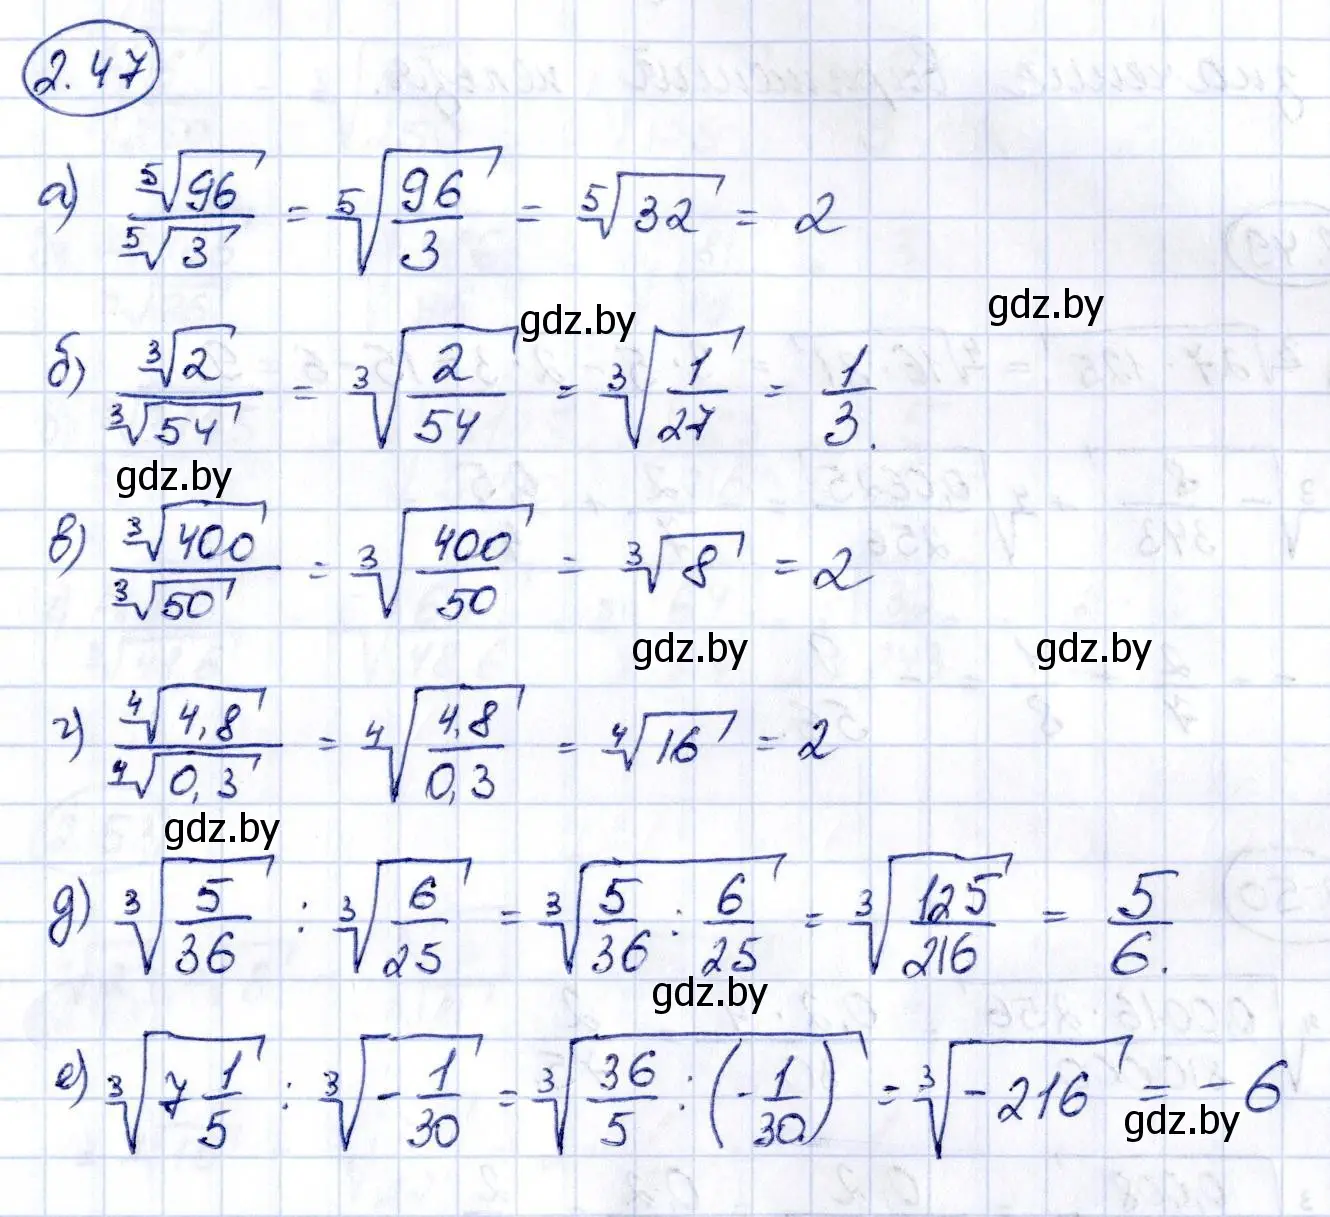 2.47
а) ⁵√96 / ⁵√3 = ⁵√(96/3) = ⁵√32 = 2
gdz.by gdz.by
б) ³√2 / ³√54 = ³√(2/54) = ³√(1/27) = 1/3.
gdz.by
в) ³√400 / ³√50 = ³√(400/50) = ³√8 = 2
gdz.by gdz.by
г) ⁴√4,8 / ⁴√0,3 = ⁴√(4,8/0,3) = ⁴√16 = 2
gdz.by
д) ³√(5/36) : ³√(6/25) = ³√(5/36 : 6/25) = ³√(125/216) = 5/6.
gdz.by
е) ³√(7 1/5) : ³√(-1/30) = ³√(36/5 : (-1/30)) = ³√(-216) = -6
gdz.by